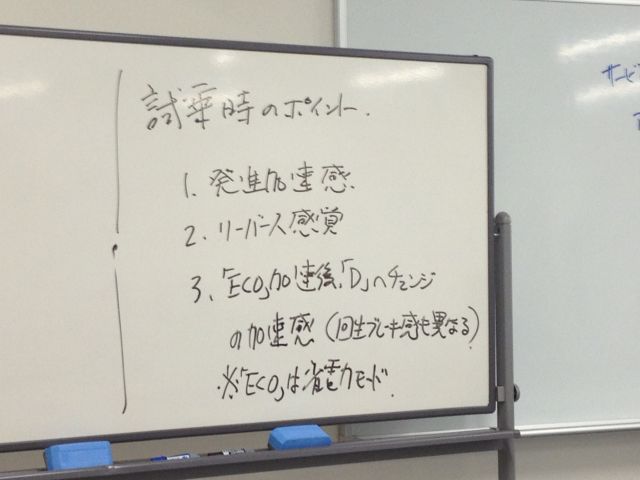 試乗時のポイント.
1. 発進加速感.
2. リーバース感覚
3、「ECO」加速後、「D」へチェンジ
の加速感（回生ブレーキ感も異なる）.
※「ECO」は省電力モード.
サービ